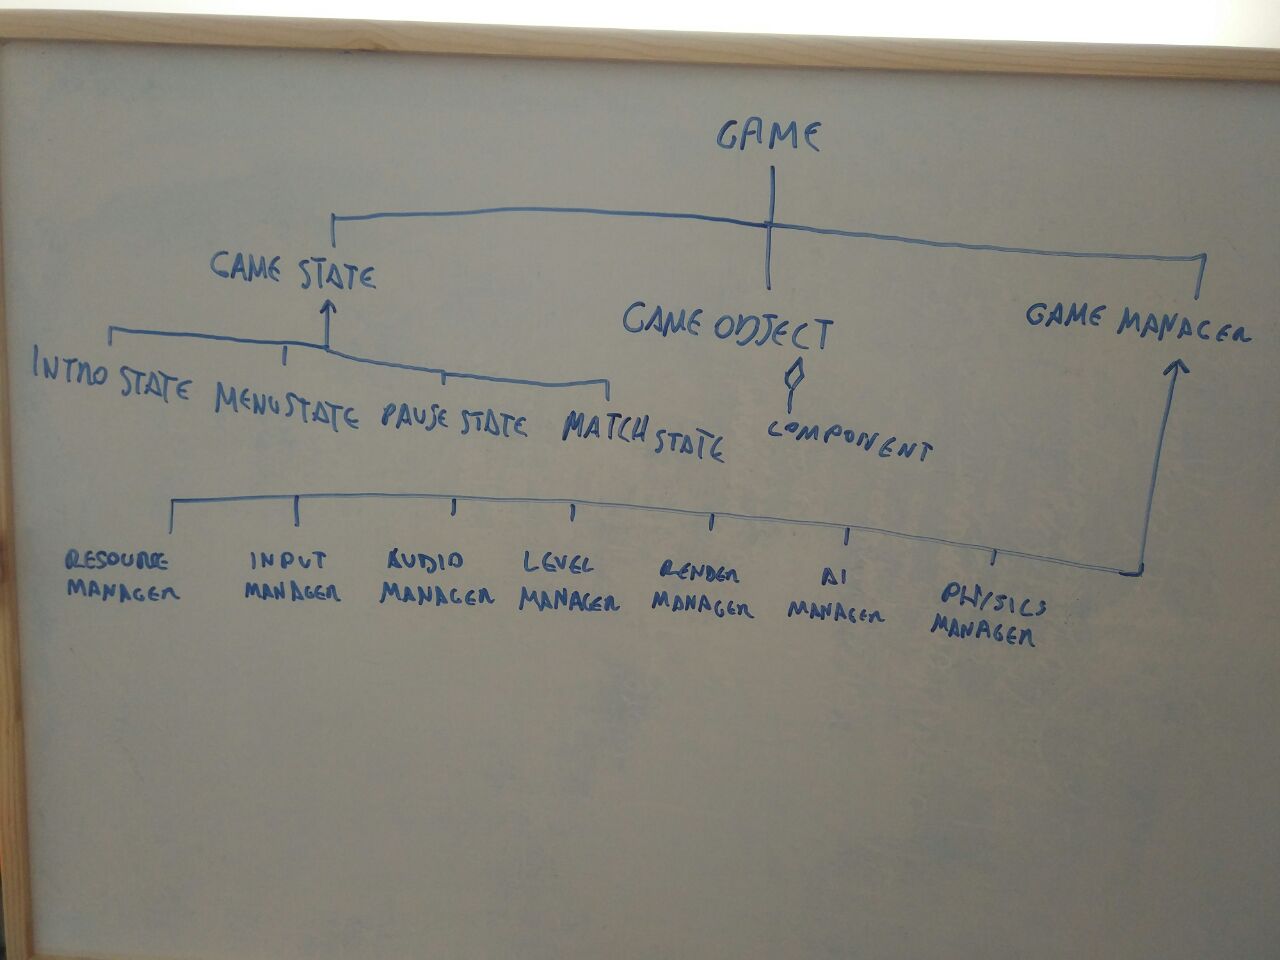 GAME
GAME STATE
GAME OBJECT
GAME MANAGER
INTRO STATE
MENU STATE
PAUSE STATE
MATCH STATE
COMPONENT
RESOURCE
MANAGER
INPUT
MANAGER
AUDIO
MANAGER
LEVEL
MANAGER
RENDER
MANAGER
AI
MANAGER
PHYSICS
MANAGER